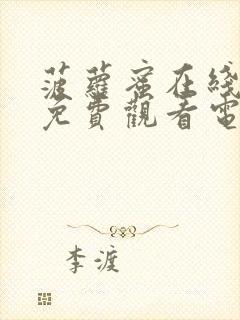 菠蘿蜜在綫
免費觀看電
李渡